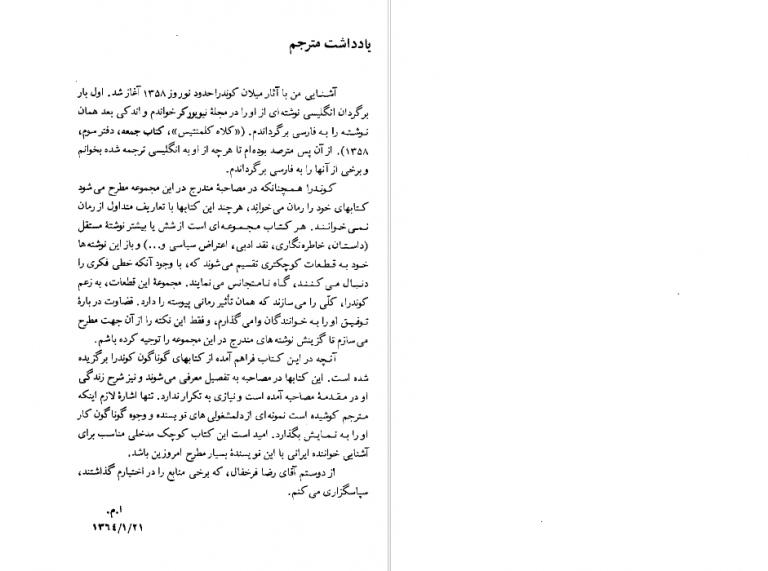 یادداشت مترجم
آشنایی من با آثار میلان کوندرا حدود نوروز ۱۳۵۸ آغاز شد. اول بار
برگردان انگلیسی نوشته‌ای از او را در مجلهٔ نیویورکر خواندم و اندکی بعد همان
نوشته را به فارسی برگرداندم. («کلاه کلمنتیس»، کتاب جمعه، دفتر سوم،
۱۳۵۸). از آن پس مترصد بوده‌ام تا هرچه از او به انگلیسی ترجمه شده بخوانم
و برخی از آنها را به فارسی برگرداندم.
کوندرا همچنانکه در مصاحبهٔ مندرج در این مجموعه مطرح می‌شود
کتابهای خود را رمان می‌خواند، هرچند این کتابها با تعاریف متداول از رمان
نمی‌خوانند. هر کتاب مجموعه‌ای است از شش یا بیشتر نوشتهٔ مستقل
(داستان، خاطره‌نگاری، نقد ادبی، اعتراض سیاسی و...) و باز این نوشته‌ها
خود به قطعات کوچکتری تقسیم می‌شوند که، با وجود آنکه خطی فکری را
دنبال می‌کنند، گاه نامتجانس می‌نمایند. مجموعهٔ این قطعات، به زعم
کوندرا، کلّی را می‌سازند که همان تأثیر رمانی پیوسته را دارد. قضاوت دربارهٔ
توفیق او را به خوانندگان وامی‌گذارم، و فقط این نکته را از آن جهت مطرح
می‌سازم تا گزینش نوشته‌های مندرج در این مجموعه را توجیه کرده باشم.
آنچه در این کتاب فراهم آمده از کتابهای گوناگون کوندرا برگزیده
شده است. این کتابها در مصاحبه به تفصیل معرفی می‌شوند و نیز شرح زندگی
او در مقدمهٔ مصاحبه آمده است و نیازی به تکرار ندارد. تنها اشارهٔ لازم اینکه
مترجم کوشیده است نمونه‌ای از دلمشغولی‌های نویسنده و وجوه گوناگون کار
او را به نمایش بگذارد. امید است این کتاب کوچک مدخلی مناسب برای
آشنایی خواننده ایرانی با این نویسندهٔ بسیار مطرح امروزین باشد.
از دوستم آقای رضا فرخفال، که برخی منابع را در اختیارم گذاشتند،
سپاسگزاری می‌کنم.
ا.م.
۱۳۶۴/۱/۲۱